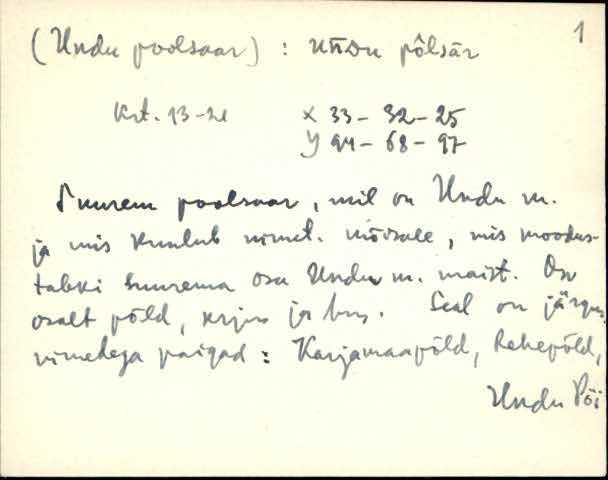 1
(Undu poolsaar) : uńdu pōlsār
Krt. 13-21 X 33 - 32 - 25
Y 94 - 68 - 97
Suurem poolsaar, mil on Undu m.
ja mis kuulub nimet. mõisale, mis moodus-
tabki suurema osa Undu m. maist. On
osalt põld, karjam ja hm. Seal on järgm.
nimedega paigad: Karjamaapõld, Rehepõld,
Undu Pöi